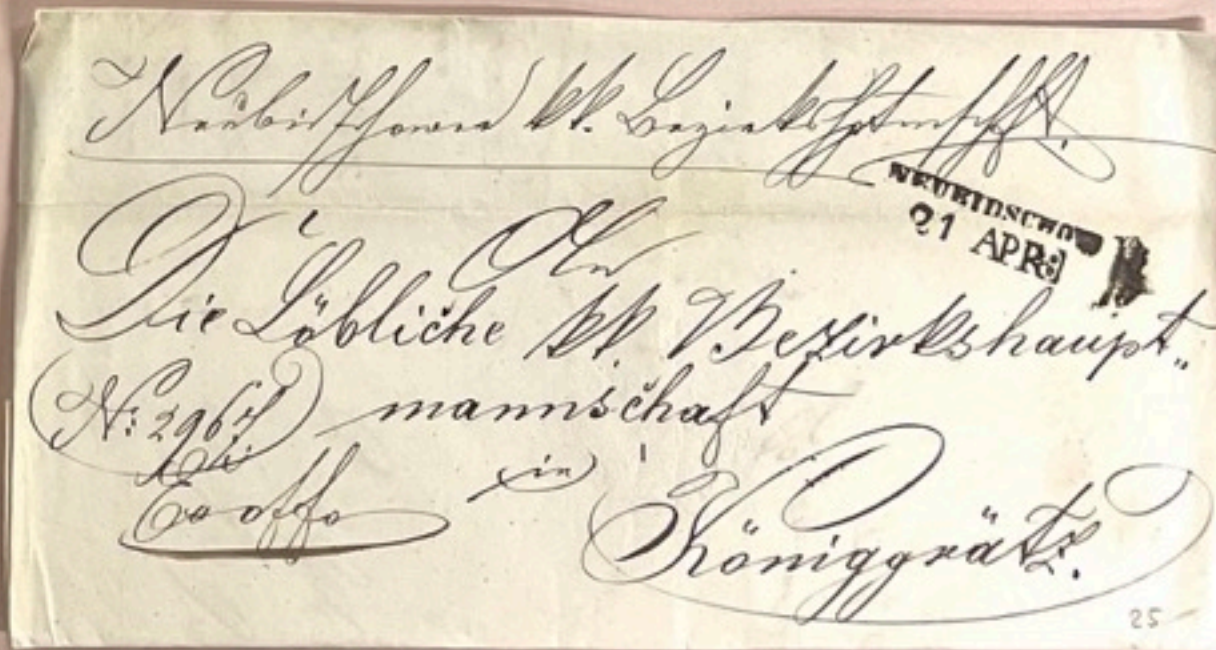 Neubidschower kk. Bezirkshptmschft.
NEUBIDSCHOW
21 APR:
An
Die Löbliche kk. Bezirkshaupt„
(N: 2967) mannschaft
Ex offo in
Königgrätz.
25